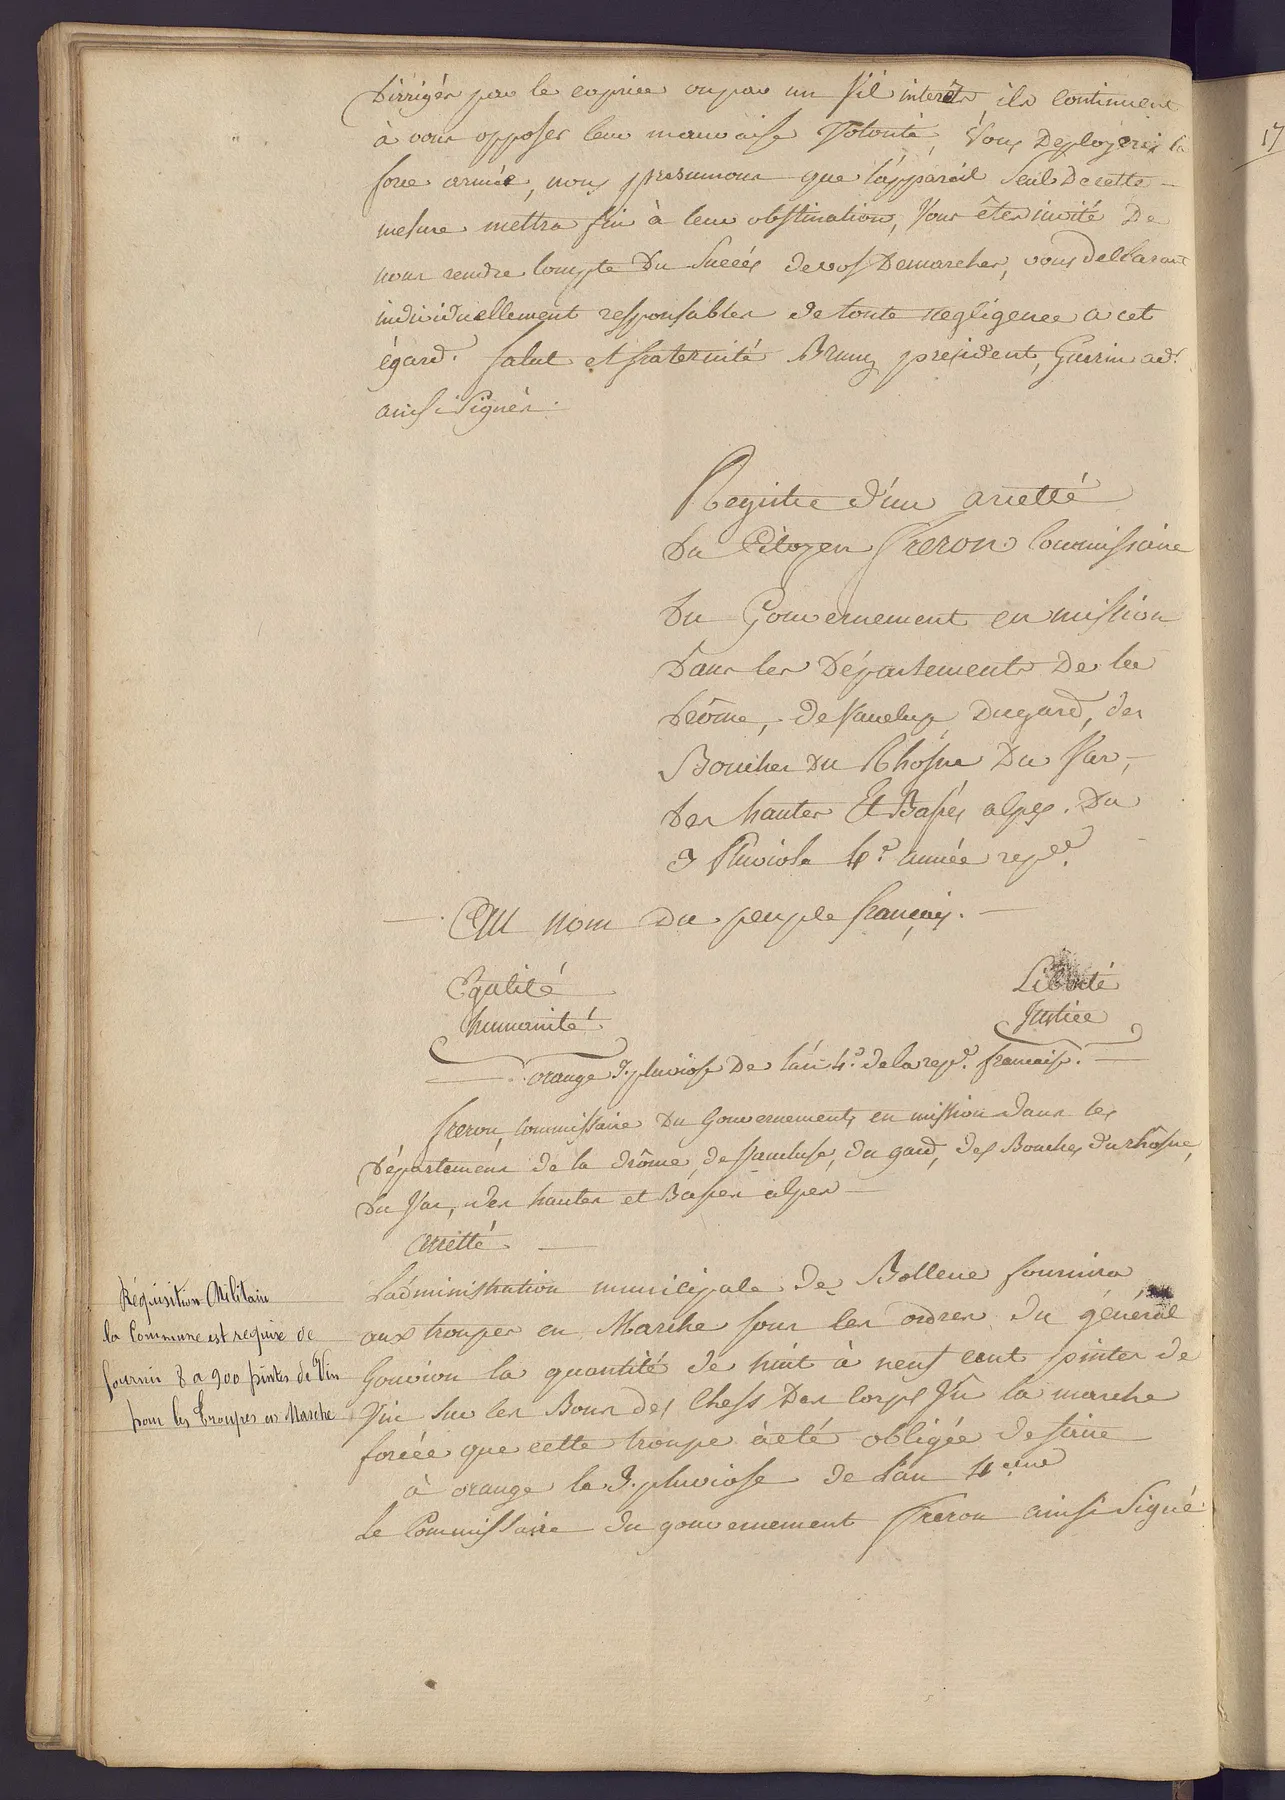 Dirrigés par le caprice ou par un vil interets, ils continuent
à vous opposer leur mauvaise volonté, vous Deployerés la
force armée, nous presumons que l'appareil seul De cette
mesure mettra fin à leur obstination, vous êtes invité De
nous rendre compte Du succés de vos Demarches, vous declarant
individuellement responsables de toute negligence a cet
égard. salut et fraternité Bruny president, Guerin ad.r
ainsi signés.
Registre d'un arretté
Du Citoyen freron Commissaire
Du Gouvernement en mission
Dans les Départements De la
Drôme, de Vaucluse Dugard, des
Bouches Du Rhosne Du Var,
Des hautes Et Basses alpes. Du
3 Pluviose 4.e année rep.e
Au nom Du peuple français.
Egalité Liberté
humanité Justice
orange 3. pluviose De l'an 4.e de la rep.e française.
freron, Commissaire Du Gouvernement, en mission dans les
Département de la drôme, de Vaucluse, du gard, des Bouches du rhosne,
Du Var, des hautes et Basses alpes
arretté
L'administration municipale de Bollene fournira
aux troupes en Marche sous les ordres du général
Gouvion la quantité de huit à neuf cent pintes de
Vin sur les Bons des Chefs Des Corps Vû la marche
forcée que cette troupe à été obligée de faire
à orange le 3. pluviose de l'an 4eme
Le Commissaire du gouvernement freron ainsi signé
Réquisition Militair
la Commune est requise de
fournir 8 a 900 pintes de Vin
pour les Troupes en Marche
17